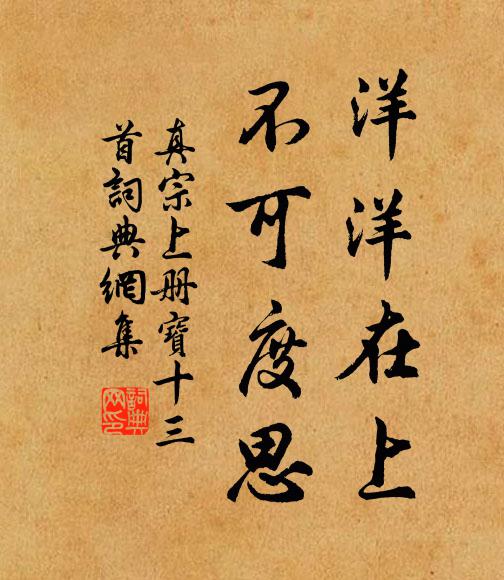 洋洋在上
不可度思
真宗上册寶十三
首詞典網集
詞典
网印